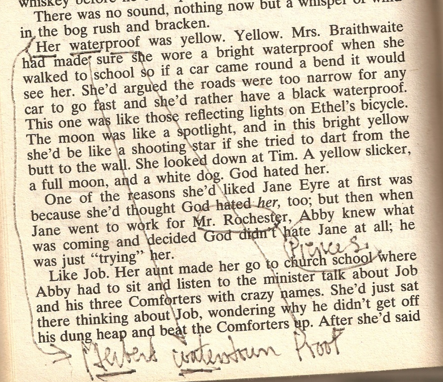 whiskey before he
There was no sound, nothing now but a whisper of wind
in the bog rush and bracken.
Her waterproof was yellow. Yellow. Mrs. Braithwaite
had made sure she wore a bright waterproof when she
walked to school so if a car came round a bend it would
see her. She'd argued the roads were too narrow for any
car to go fast and she'd rather have a black waterproof.
This one was like those reflecting lights on Ethel's bicycle.
The moon was like a spotlight, and in this bright yellow
she'd be like a shooting star if she tried to dart from the
butt to the wall. She looked down at Tim. A yellow slicker,
a full moon, and a white dog. God hated her.
One of the reasons she'd liked Jane Eyre at first was
because she'd thought God hated her, too; but then when
Jane went to work for Mr. Rochester, Abby knew what
was coming and decided God didn't hate Jane at all; he
was just "trying" her.
Like Job. Her aunt made her go to church school where
Abby had to sit and listen to the minister talk about Job
and his three Comforters with crazy names. She'd just sat
there thinking about Job, wondering why he didn't get off
his dung heap and beat the Comforters up. After she'd said
Proof